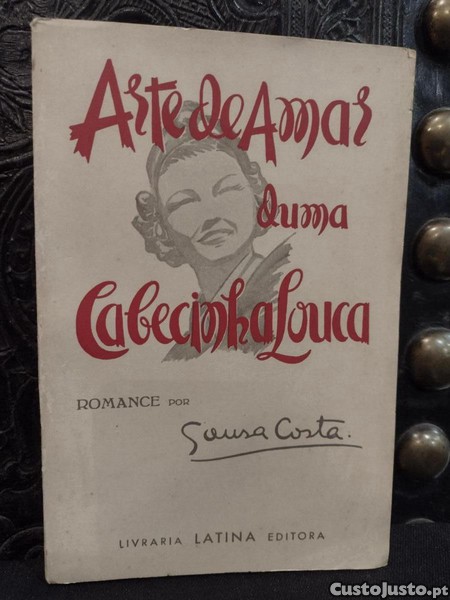 Arte de Amar
duma
Cabecinha Louca
ROMANCE POR
Sousa Costa.
LIVRARIA LATINA EDITORA
CustoJusto.pt